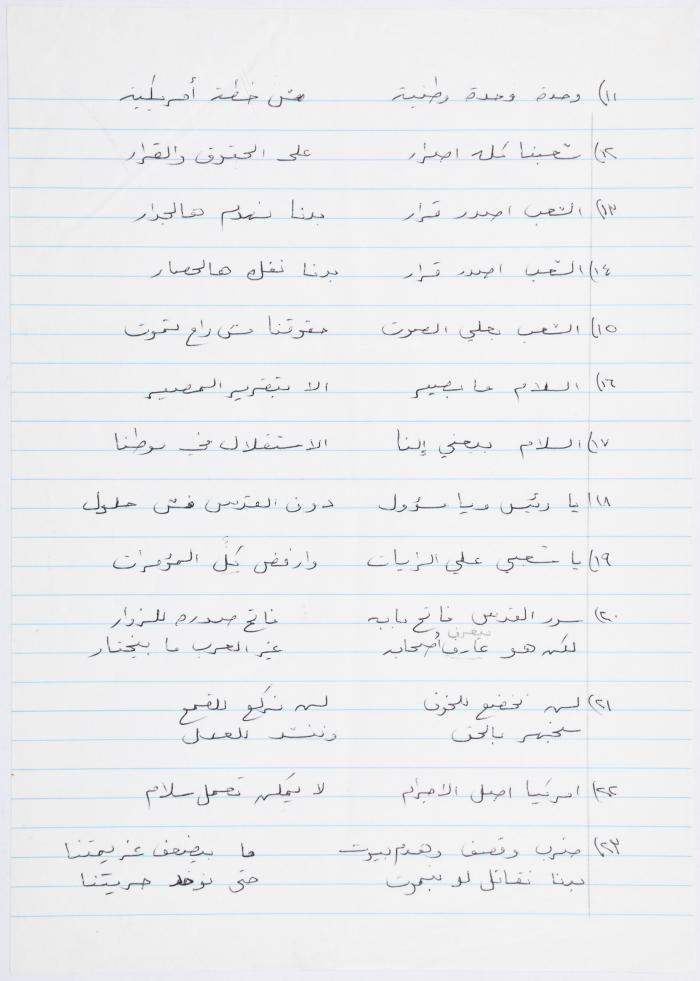 ١١) وحدة وحدة وطنية مش خطة أمريكية
١٢) شعبنا كله اصرار على الحقوق والقرار
١٣) الشعب اصدر قرار بدنا نهدم هالجدار
١٤) الشعب اصدر قرار بدنا نفك هالحصار
١٥) الشعب بعلي الصوت حقوقنا مش راح تموت
١٦) السلام ما بصير الا بتقرير المصير
١٧) السلام بيعني إلنا الاستقلال في موطنا
١٨) يا رئيس ويا مسؤول دون القدس فش حلول
١٩) يا شعبي علي الرايات وارفض كلَّ المؤمرات
٢٠) سور القدس فاتح بابه فاتح صدره للزوار
لكن هو عارف أصحابه غير العرب ما بيختار
بيعرف
٢١) لن نخضع للخوف لن نركع للقمع
سنجهر بالحق وننشد للعدل
٢٢) امريكيا اصل الاجرام لا يمكن تعمل سلام
٢٣) ضرب وقصف وهدم بيوت ما بيضعف عزيمتنا
بدنا نقاتل لو بنموت حتى نوخد حريتنا